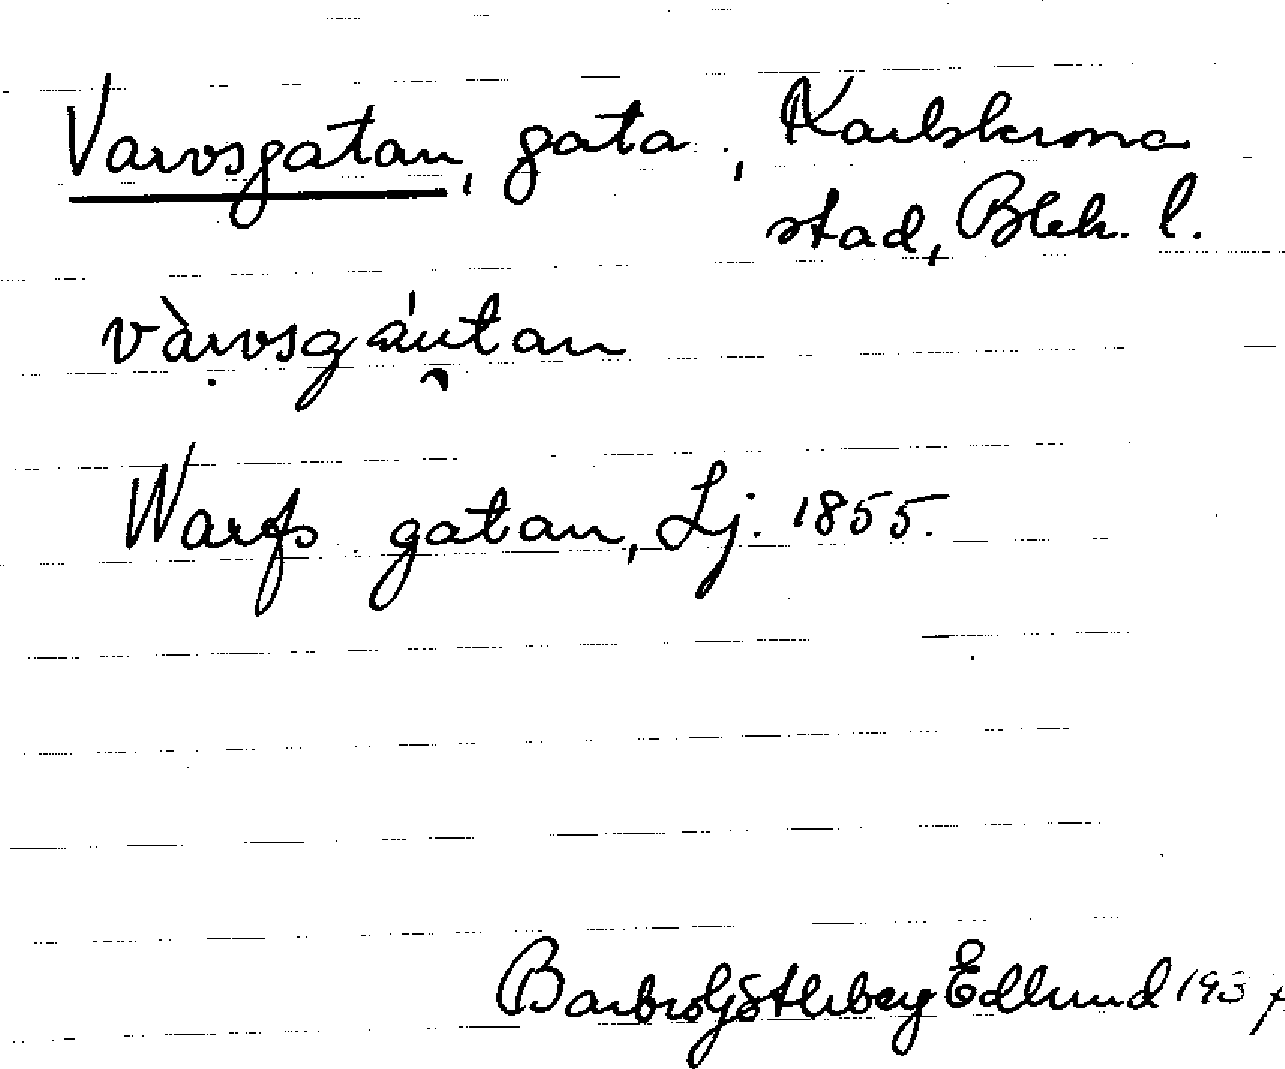 Varvsgatan, gata, Karlskrona
stad, Blek. l.
vàrvsgáutan
Warfs gatan, Lj. 1855.
Barbro Götleberg Edlund 193